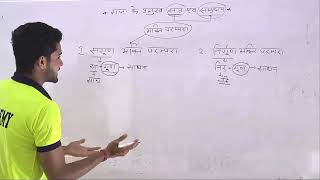 राजा के प्रमुख सन्त एवं सम्प्रदाय
भक्ति परम्परा
1. सगुण भक्ति परम्परा
2. निर्गुण भक्ति परम्परा
स + गुण → साधन
निर् + गुण → साधन
EMY